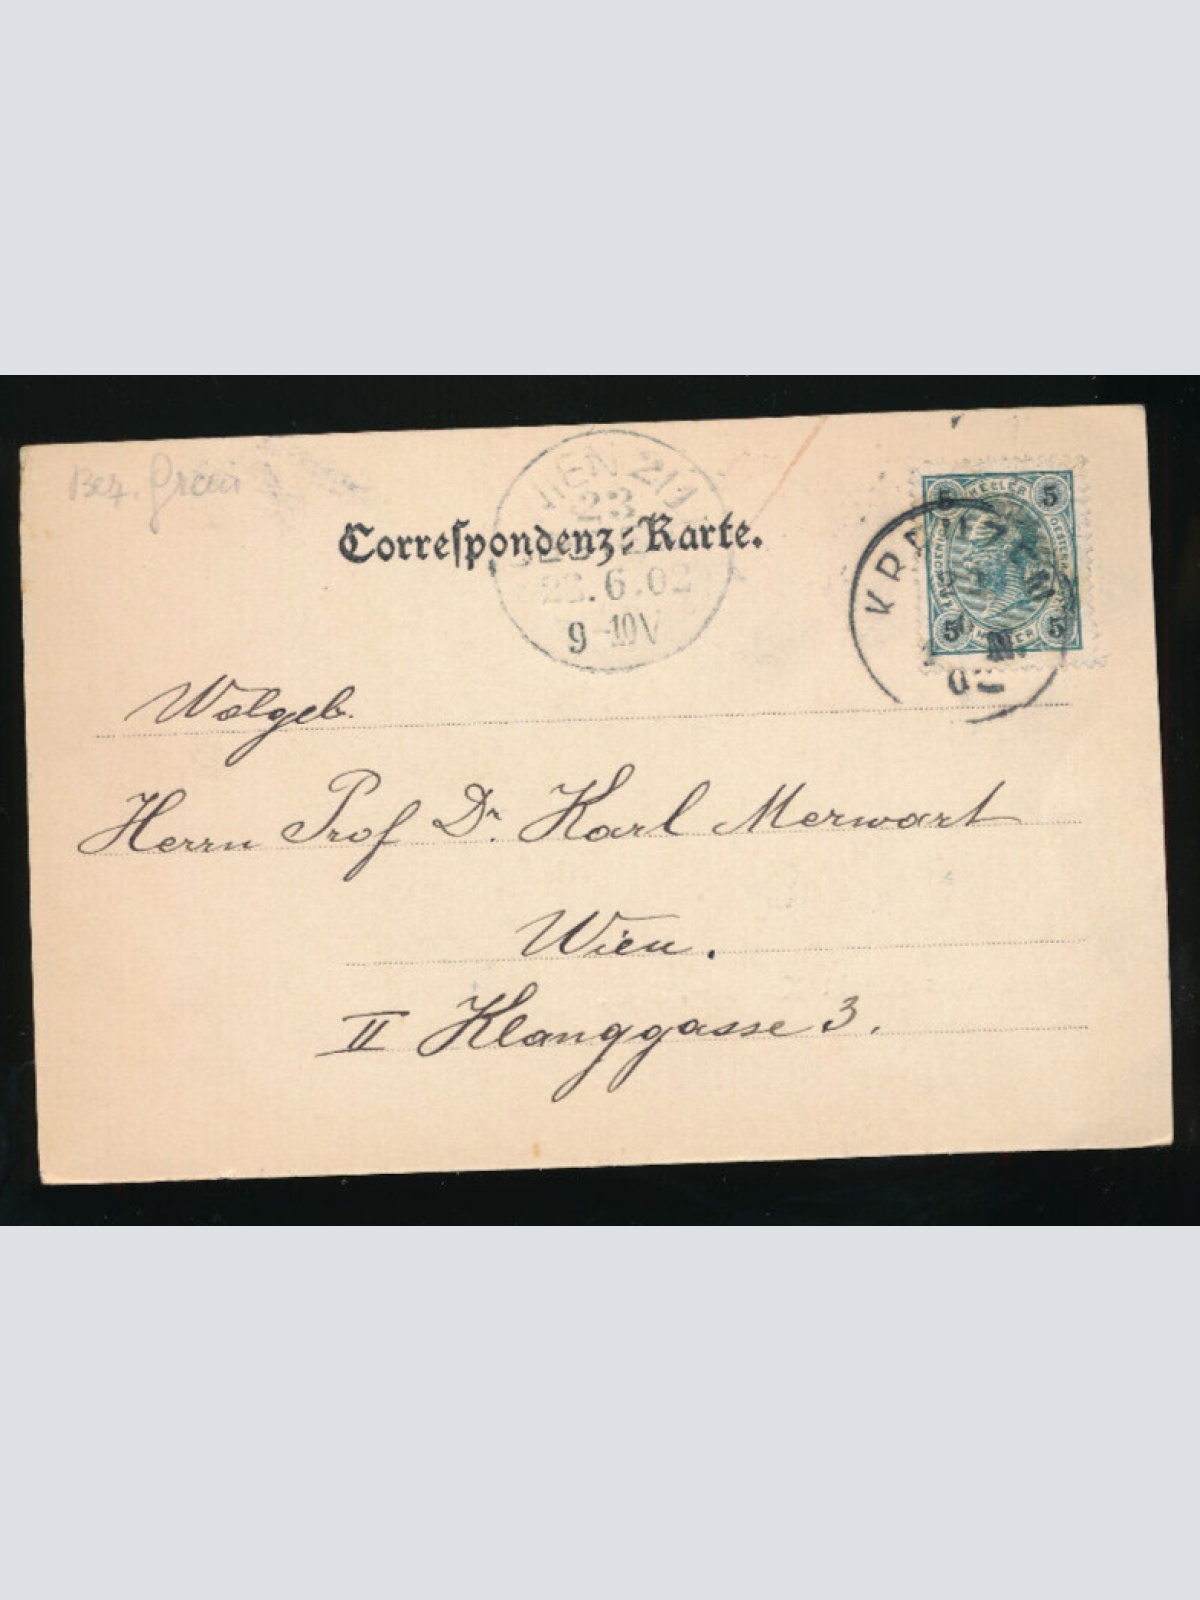 Bez. Grein
WIEN 2/1
23
BESTELLT
22.6.02
9-10V
Correspondenz-Karte.
5 HELLER 5
5 HELLER 5
KR
02
Wolgeb.
Herrn Prof Dr. Karl Merwart
Wien.
II Klanggasse 3.